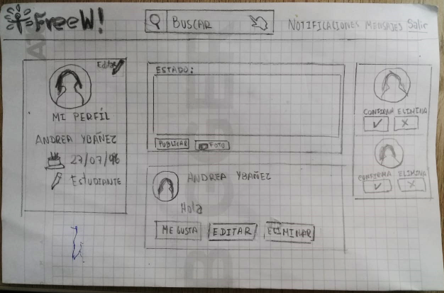 FreeW!
BUSCAR
NOTIFICACIONES MENSAJES Salir
Editar
MI PERFÍL
ANDREA YBAÑEZ
27/07/96
ESTUDIANTE
ESTADO:
PUBLICAR FOTO
ANDREA YBAÑEZ
Hola
ME GUSTA EDITAR ELIMINAR
CONFIRMA ELIMINA
CONFIRMA ELIMINA